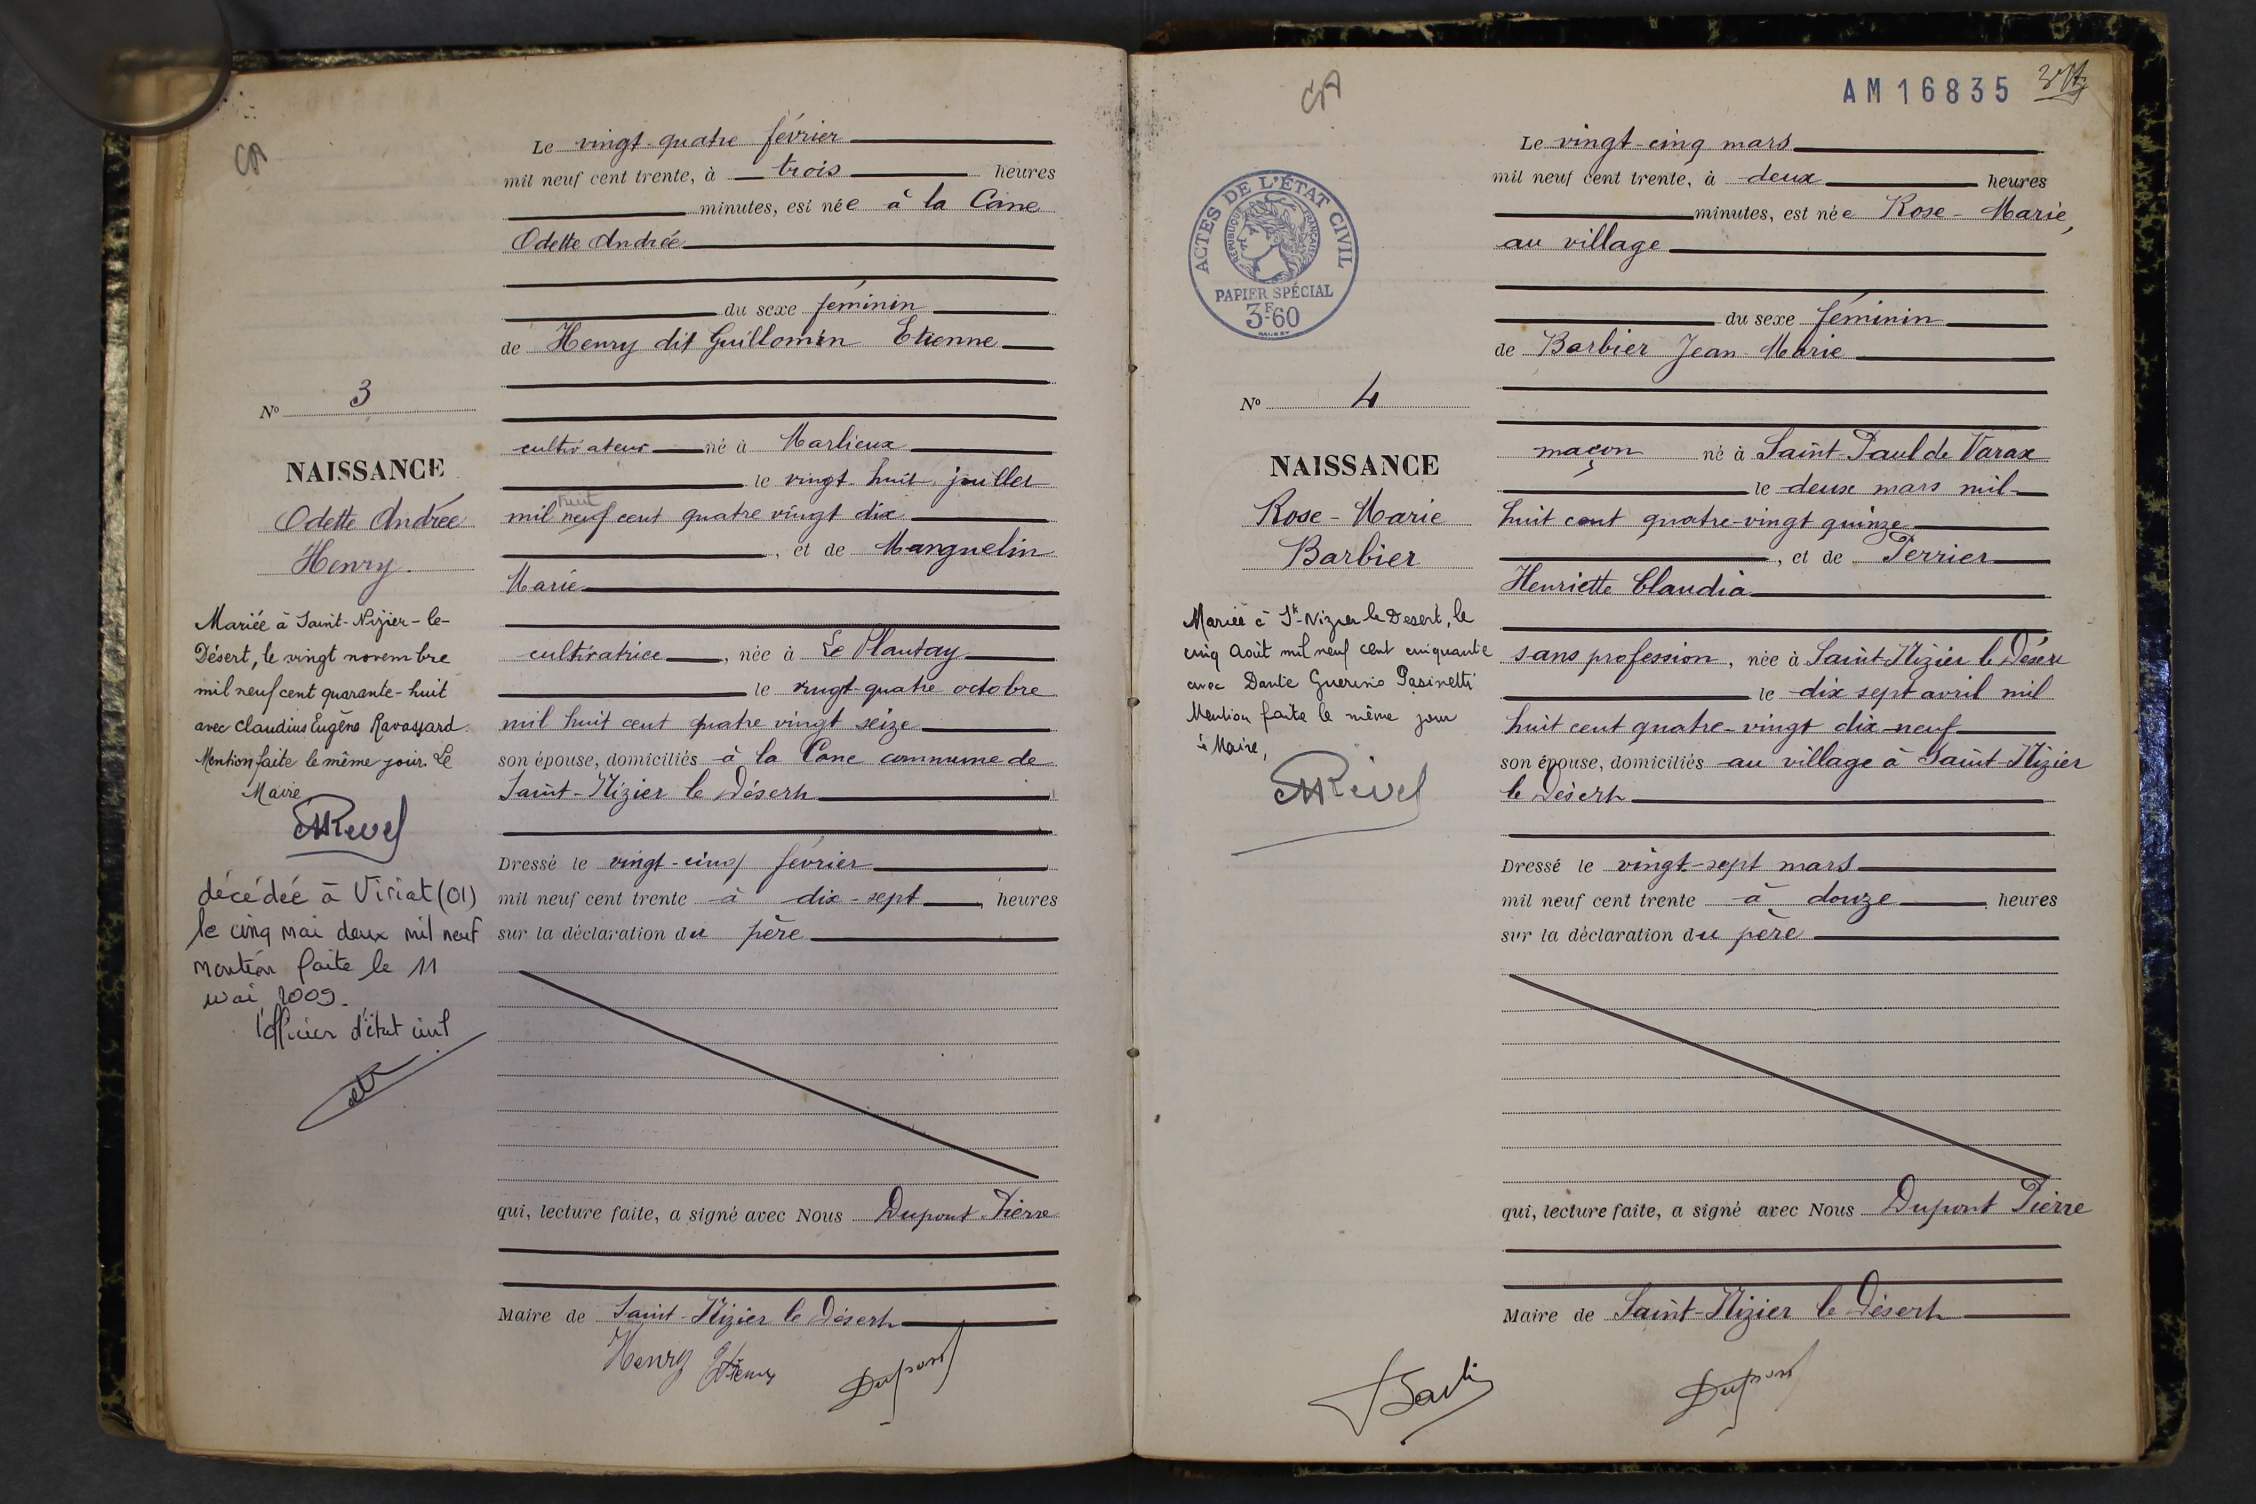 CA
Le vingt-quatre février
mil neuf cent trente, à trois heures
minutes, est née à la Cane
Odette Andrée
du sexe féminin
de Henry dit Guillomin Etienne
N° 3
cultivateur né à Marlieux
NAISSANCE
le vingt-huit juillet
Odette Andrée
huit
mil neuf cent quatre vingt dix
Henry
, et de Manguelin
Marie
Mariée à Saint-Nizier-le-
Désert, le vingt novembre
mil neuf cent quarante-huit
avec Claudius Eugène Ravassard.
Mention faite le même jour. Le
Maire,
cultivatrice, née à Le Plantay
le vingt-quatre octobre
mil huit cent quatre vingt seize
son épouse, domiciliés à la Cane commune de
Saint-Nizier le Désert
Revel
Dressé le vingt-cinq février
décédée à Viriat (01)
le cinq mai deux mil neuf
mention faite le 11
mai 2009.
l'officier d'état civil
mil neuf cent trente à dix-sept, heures
sur la déclaration du père
qui, lecture faite, a signé avec Nous Dupont Pierre
Maire de Saint-Nizier le Désert
Henry Etienne
Dupont
CA
AM 16835
Le vingt-cinq mars
mil neuf cent trente, à deux heures
minutes, est née Rose-Marie,
au village
ACTES DE L'ÉTAT CIVIL
RÉPUBLIQUE FRANÇAISE
PAPIER SPÉCIAL
3F60
du sexe féminin
de Barbier Jean-Marie
N° 4
maçon né à Saint-Paul de Varax
NAISSANCE
le deux mars mil
Rose-Marie
huit cent quatre-vingt quinze
Barbier
, et de Perrier
Henriette Claudia
Mariée à St-Nizier le Désert, le
cinq Août mil neuf cent cinquante
avec Dante Guerino Pasinetti
Mention faite le même jour
le Maire,
sans profession, née à Saint-Nizier le Désert
le dix sept avril mil
huit cent quatre-vingt dix-neuf
son épouse, domiciliés au village à Saint-Nizier
le Désert
Revel
Dressé le vingt-sept mars
mil neuf cent trente à douze, heures
sur la déclaration du père
qui, lecture faite, a signé avec Nous Dupont Pierre
Maire de Saint-Nizier le Désert
Dupont